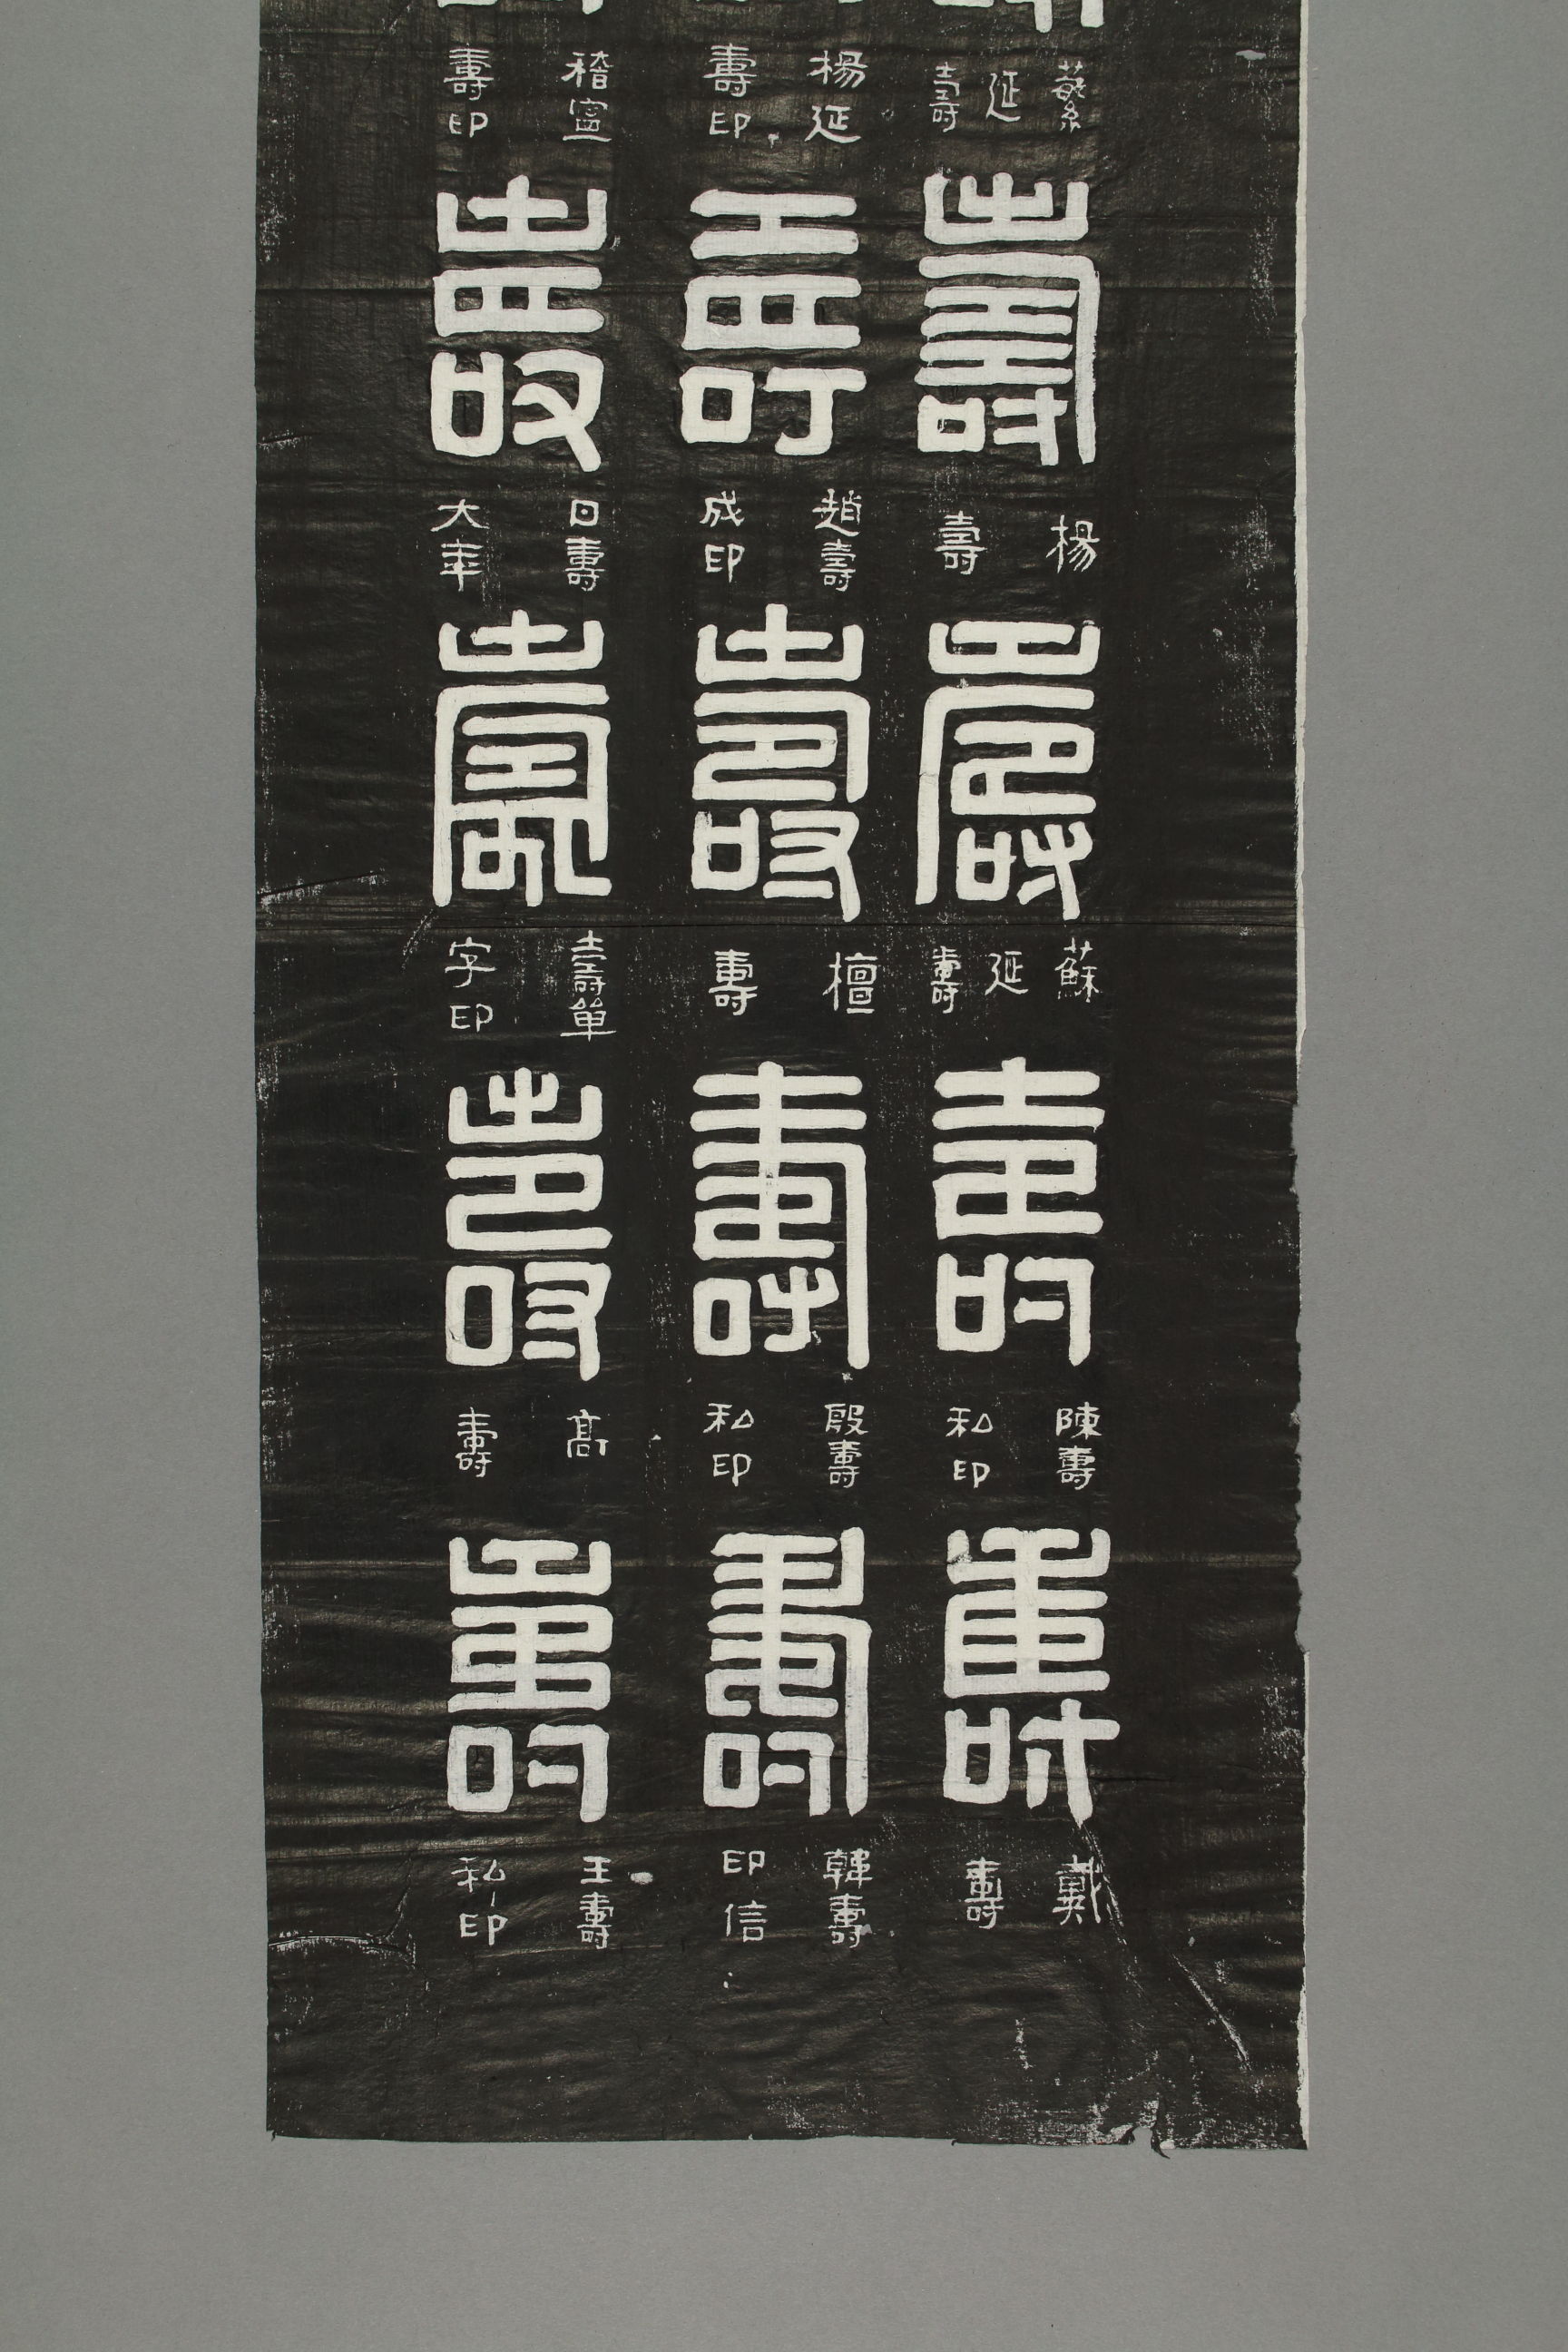 蘩延壽
壽
楊壽
壽
蘇延壽
壽
陳壽私印
壽
戴壽
楊延壽印
壽
趙壽成印
壽
檀壽
壽
殷壽私印
壽
韓壽印信
壽印
壽
日壽大年
壽
壽單字印
壽
高壽
壽
王壽私印